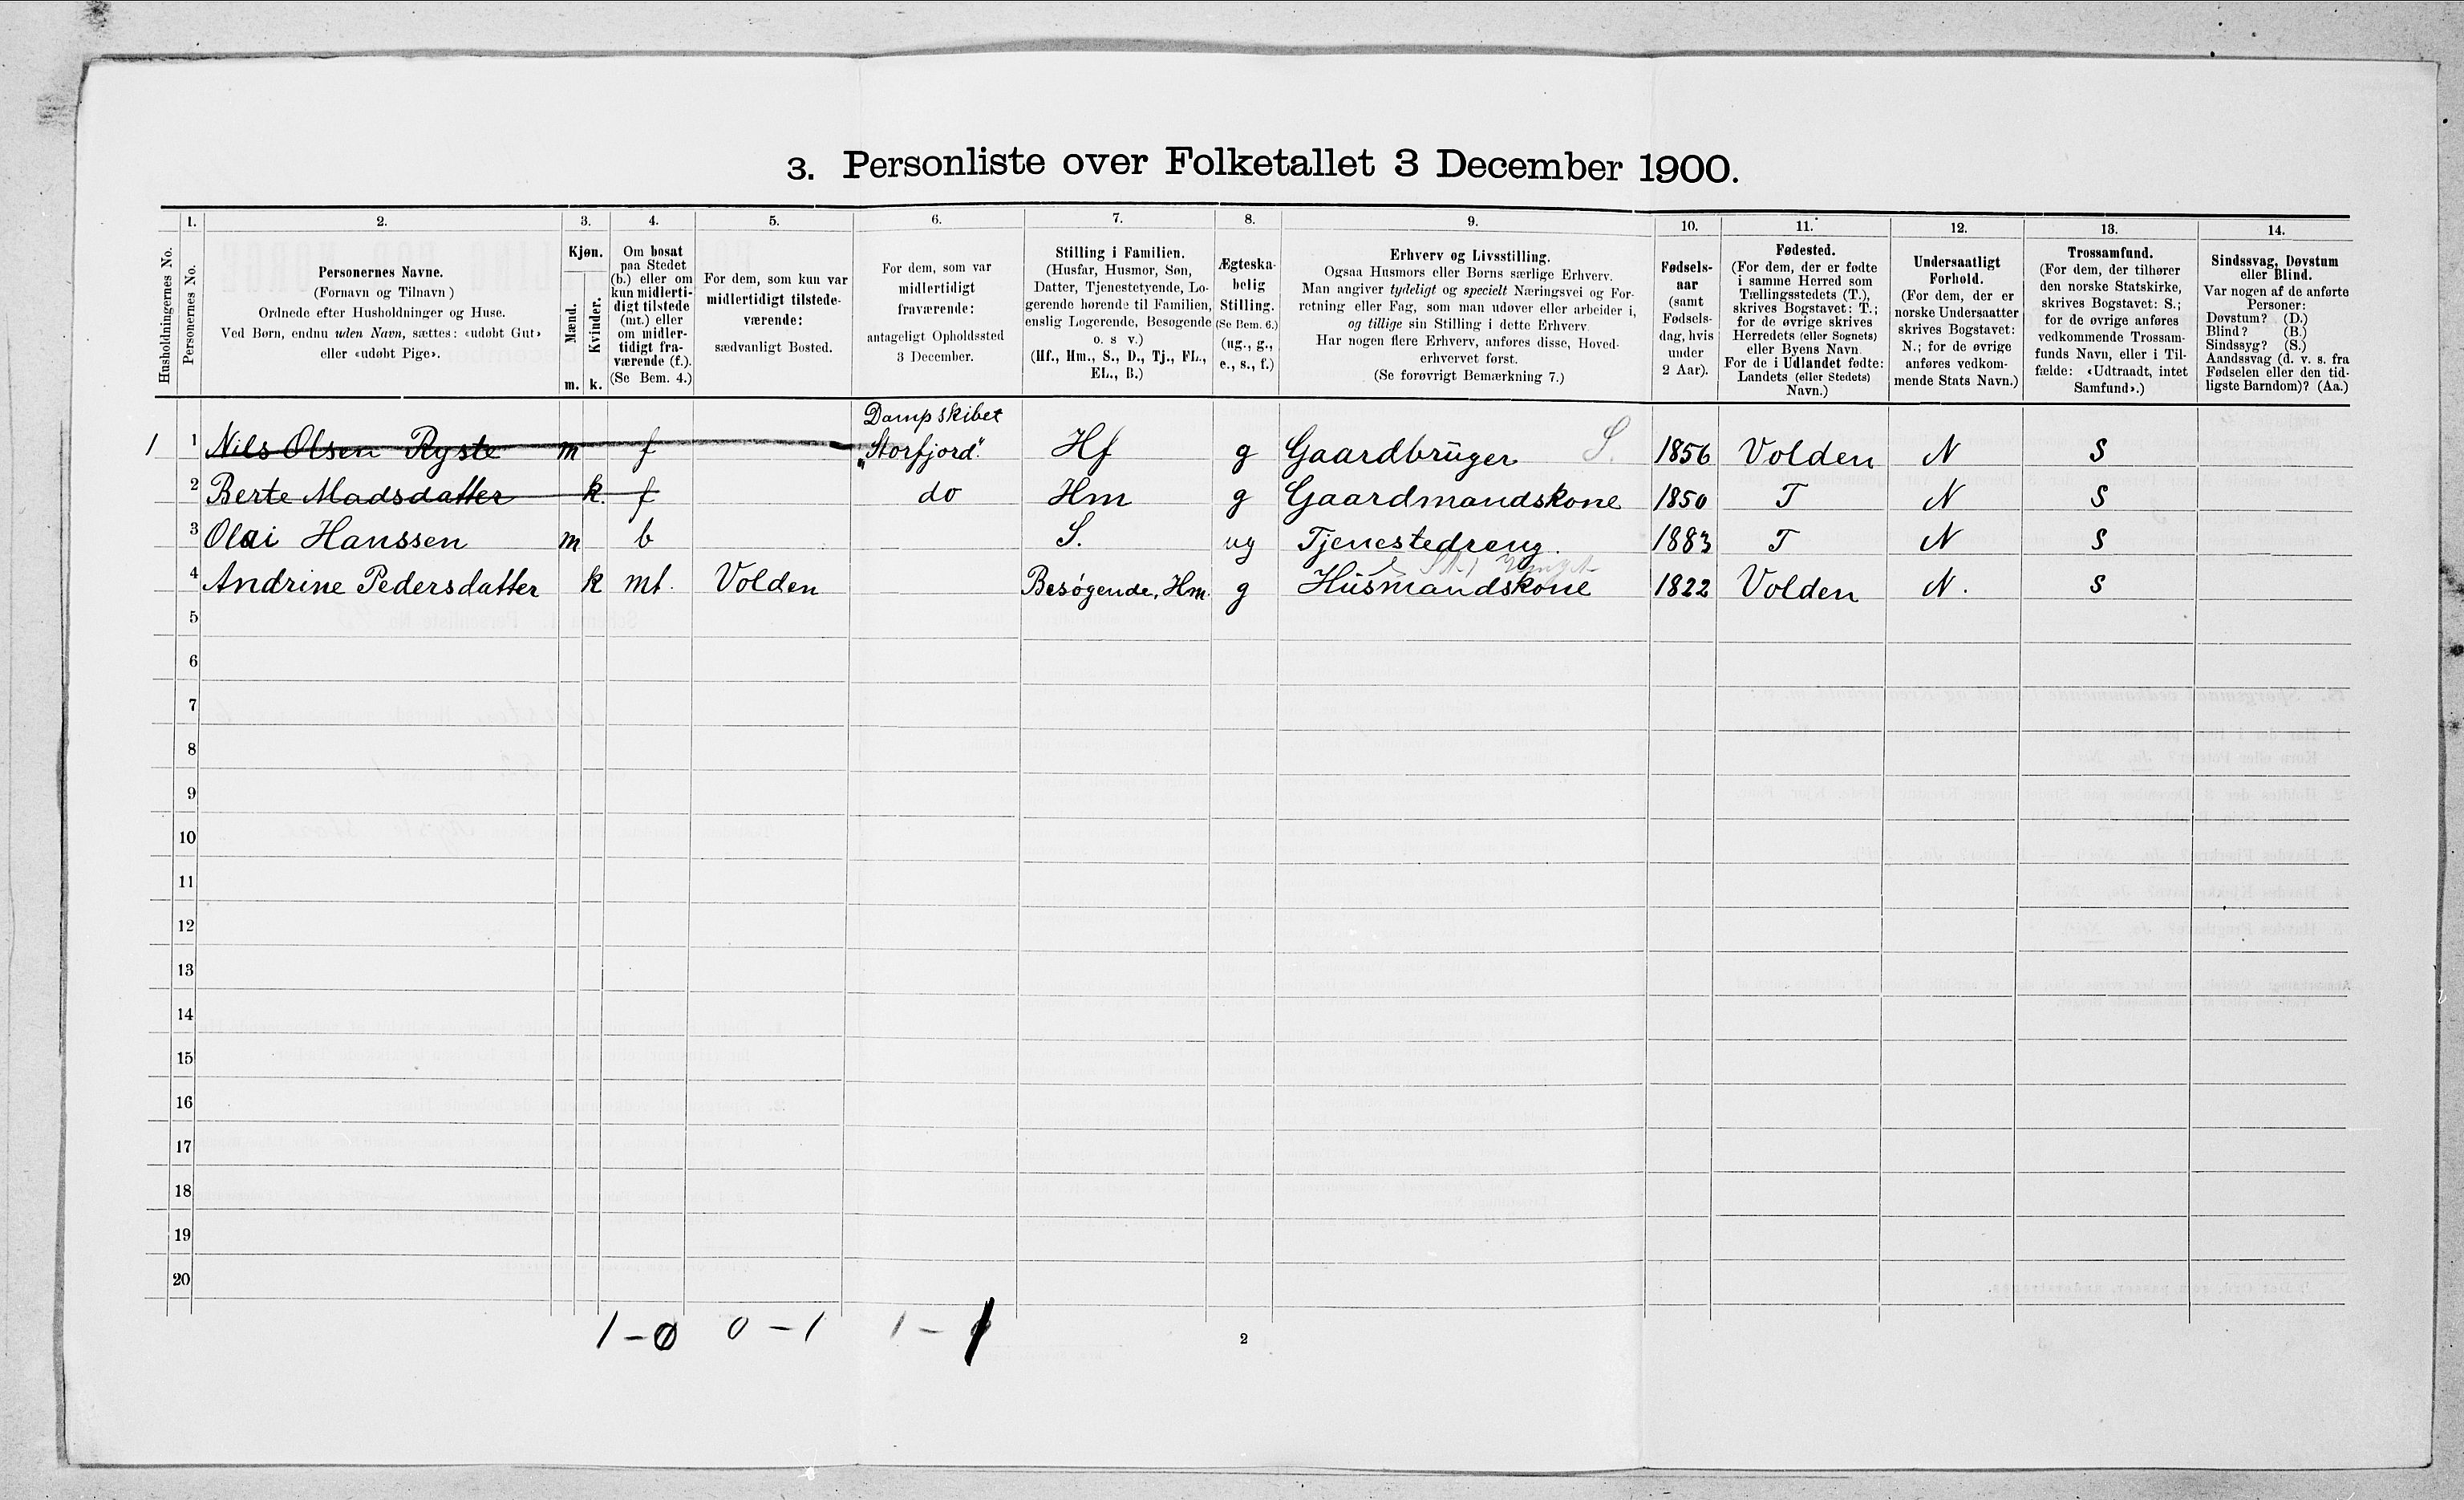 3. Personliste over Folketallet 3 December 1900.
1. 2. 3. 4. 5. 6. 7. 8. 9. 10. 11. 12. 13. 14.
Husholdningernes No.
Personernes No.
Personernes Navne.
(Fornavn og Tilnavn)
Ordnede efter Husholdninger og Huse.
Ved Børn, endnu uden Navn, sættes: «udøbt Gut»
eller «udøbt Pige».
Kjøn.
Mænd.
Kvinder.
m. k.
Om bosat
paa Stedet
(b.) eller om
kun midlerti-
digt tilstede
(mt.) eller
om midler-
tidigt fra-
værende (f.).
(Se Bem. 4.)
For dem, som kun var
midlertidigt tilstede-
værende:
sædvanligt Bosted.
For dem, som var
midlertidigt
fraværende:
antageligt Opholdssted
3 December.
Stilling i Familien.
(Husfar, Husmor, Søn,
Datter, Tjenestetyende, Lo-
gerende hørende til Familien,
enslig Logerende, Besøgende
o. s v.)
(Hf., Hm., S., D., Tj., FL.,
EL., B.)
Ægteska-
belig
Stilling.
(Se Bem. 6.)
(ug., g.,
e., s., f.)
Erhverv og Livsstilling.
Ogsaa Husmors eller Børns særlige Erhverv.
Man angiver tydeligt og specielt Næringsvei og For-
retning eller Fag, som man udøver eller arbeider i,
og tillige sin Stilling i dette Erhverv.
Har nogen flere Erhverv, anføres disse, Hoved-
erhvervet først.
(Se forøvrigt Bemærkning 7.)
Fødsels-
aar
(samt
Fødsels-
dag, hvis
under
2 Aar).
Fødested.
(For dem, der er fødte
i samme Herred som
Tællingsstedets (T.),
skrives Bogstavet: T.;
for de øvrige skrives
Herredets (eller Sognets)
eller Byens Navn.
For de i Udlandet fødte:
Landets (eller Stedets)
Navn.)
Undersaatligt
Forhold.
(For dem, der er
norske Undersaatter
skrives Bogstavet:
N.; for de øvrige
anføres vedkom-
mende Stats Navn.)
Trossamfund.
(For dem, der tilhører
den norske Statskirke,
skrives Bogstavet: S.;
for de øvrige anføres
vedkommende Trossam-
funds Navn, eller i Til-
fælde: «Udtraadt, intet
Samfund».)
Sindssvag, Døvstum
eller Blind.
Var nogen af de anførte
Personer:
Døvstum? (D.)
Blind? (B.)
Sindssyg? (S.)
Aandssvag (d. v. s. fra
Fødselen eller den tid-
ligste Barndom)? (Aa.)
Dampskibet
1 1 Nils Olsen Ryste m f „Storfjord“. Hf g Gaardbruger S. 1856 Volden N S
2 Berte Madsdatter k. f do Hm g Gaardmandskone 1850 T N S
3 Olai Hanssen m b S. ug Tjenestedreng. 1883 T N S
4 Andrine Pedersdatter k mt. Volden Besøgende, Hm. g Husmandskone 1822 Volden N. S
5
6
7
8
9
10
11
12
13
14
15
16
17
18
19
20
1 - 0 0 - 1 1 - 1
2